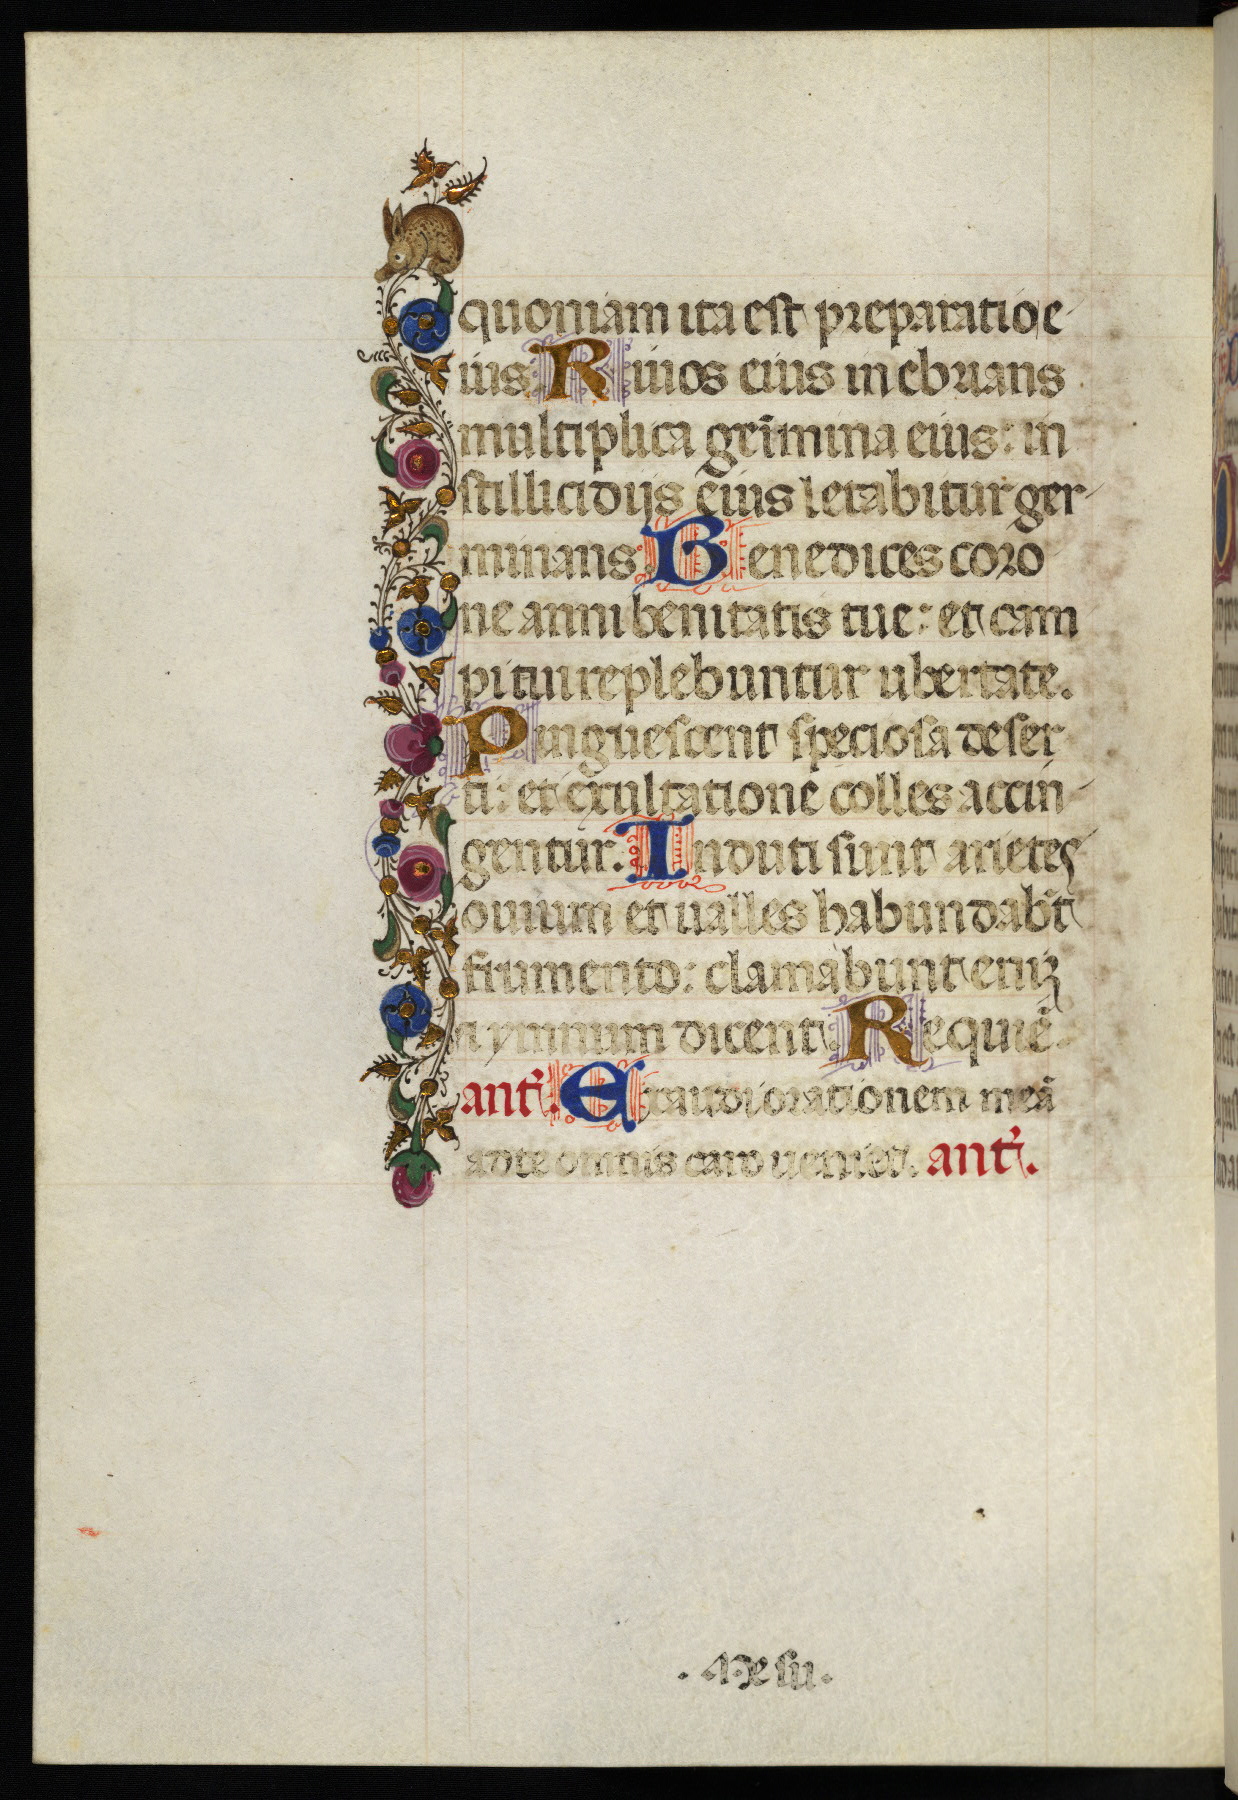 quoniam ita est preparatio e
ius. Riuos eius in ebrians
multiplica geñimina eius: in
stillicidijs eius letabitur ger
minans. Benedices coro
ne anni benitatis tue: et cam
pi tui replebuntur ubertate.
Pinguescent speciosa deser
ti: et exultatione colles accin
gentur. Induti sunt arietes
ouium et ualles habundabt̃
frumento: clamabunt eniʒ
hymnum dicent. Requiẽ
antẽ. Exaudi orationem meã
ad te omnis caro ueniet. antẽ.